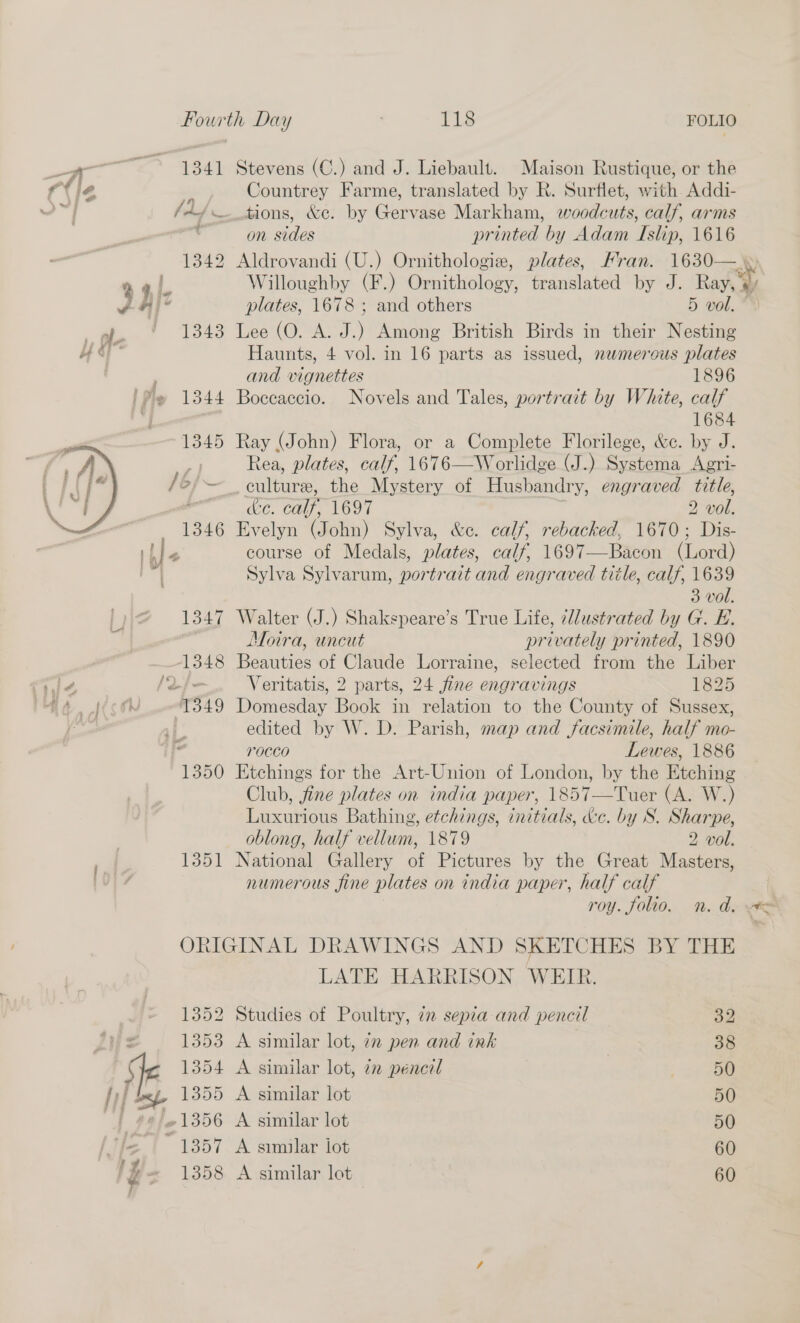 Fourth Day 118 FOLIO
1341 Stevens (C.) and J. Liebault. Maison Rustique, or the
Countrey Farme, translated by R. Surflet, with Addi-
tions, &c. by Gervase Markham, woodcuts, calf, arms
on sides printed by Adam Islip, 1616
1342 Aldrovandi (U.) Ornithologiæ, plates, Fran. 1630—
Willoughby (F.) Ornithology, translated by J. Ray,
plates, 1678; and others 5 vol.
1343 Lee (O. A. J.) Among British Birds in their Nesting
Haunts, 4 vol. in 16 parts as issued, numerous plates
and vignettes 1896
1344 Boccaccio. Novels and Tales, portrait by White, calf
1684
1345 Ray (John) Flora, or a Complete Florilege, &c. by J.
Rea, plates, calf, 1676—Worlidge (J.) Systema Agri-
culturæ, the Mystery of Husbandry, engraved title,
&c. calf, 1697 2 vol.
1346 Evelyn (John) Sylva, &c. calf, rebacked, 1670; Dis-
course of Medals, plates, calf, 1697—Bacon (Lord)
Sylva Sylvarum, portrait and engraved title, calf, 1639
3 vol.
1347 Walter (J.) Shakspeare's True Life, illustrated by G. E.
Moira, uncut privately printed, 1890
1348 Beauties of Claude Lorraine, selected from the Liber
Veritatis, 2 parts, 24 fine engravings 1825
1349 Domesday Book in relation to the County of Sussex,
edited by W. D. Parish, map and facsimile, half mo-
rocco Lewes, 1886
1350 Etchings for the Art-Union of London, by the Etching
Club, fine plates on india paper, 1857—Tuer (A. W.)
Luxurious Bathing, etchings, initials, &c. by S. Sharpe,
oblong, half vellum, 1879 2 vol.
1351 National Gallery of Pictures by the Great Masters,
numerous fine plates on india paper, half calf
roy. folio. n. d.
ORIGINAL DRAWINGS AND SKETCHES BY THE
LATE HARRISON WEIR.
1352 Studies of Poultry, in sepia and pencil 32
1353 A similar lot, in pen and ink 38
1354 A similar lot, in pencil 50
1355 A similar lot 50
1356 A similar lot 50
1357 A similar lot 60
1358 A similar lot 60